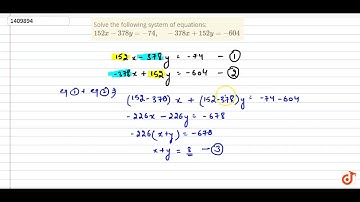 1409894
Solve the following system of equations:
152x − 378y = −74, −378x + 152y = −604
152x − 378y = -74 − ①
-378x + 152y = -604 − ②
eq ① + eq ②
(152-378) x + (152-378)y = -74-604
-226x - 226y = -678
-226(x+y) = -678
x+y = 3 − ③